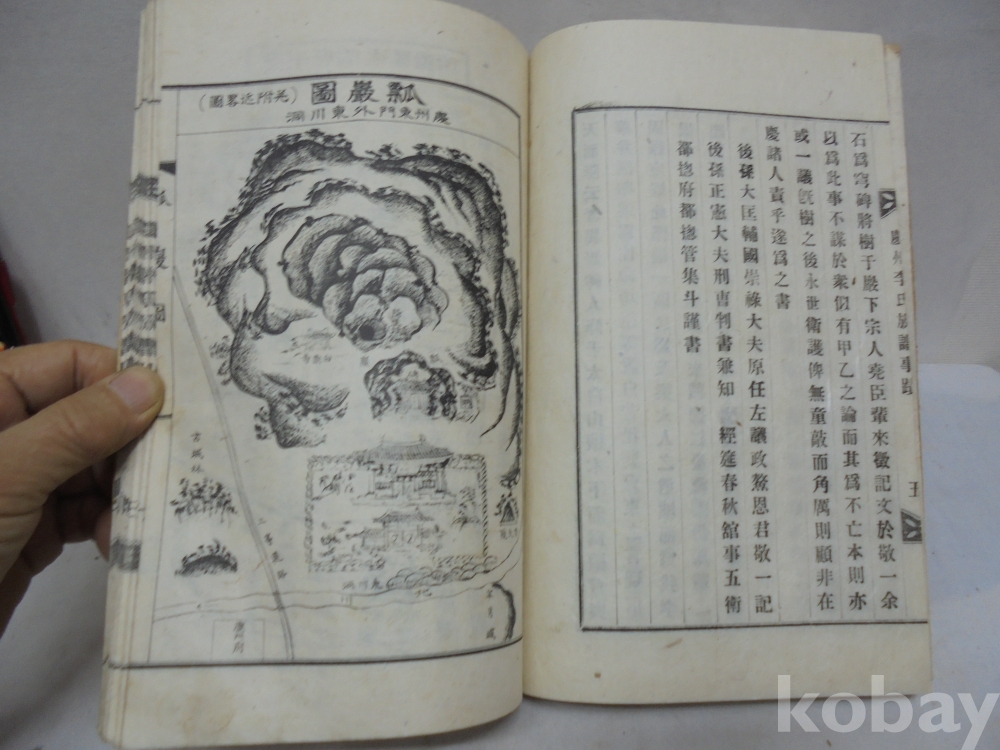 石爲穹碑將樹于巖下宗人堯臣輩來徵記文於敬一余
以爲此事不謀於衆似有甲乙之論而其爲不亡本則亦
或一議旣樹之後永世衛護俾無童敲而角厲則顧非在
慶諸人責乎遂爲之書
後孫大匡輔國崇祿大夫原任左議政鰲恩君敬一記
後孫正憲大夫刑曹判書兼知 經筵春秋館事五衛
都摠府都摠管集斗謹書
慶州李氏族譜事蹟
五
瓢巖圖
(並附近畧圖)
慶州東門外東川洞
瓢巖圖
古城林
東川洞
慶州府
kobay